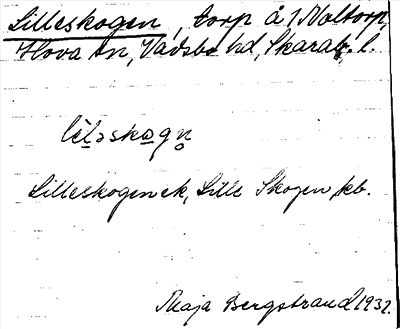 Lilleskogen, torp å 1 Noltorp,
Hova sn, Vadsbo hd, Skarab. l.
lìləskogn̥
Lilleskogen ek, Lille Skogen kb.
Maja Bergstrand 1932.